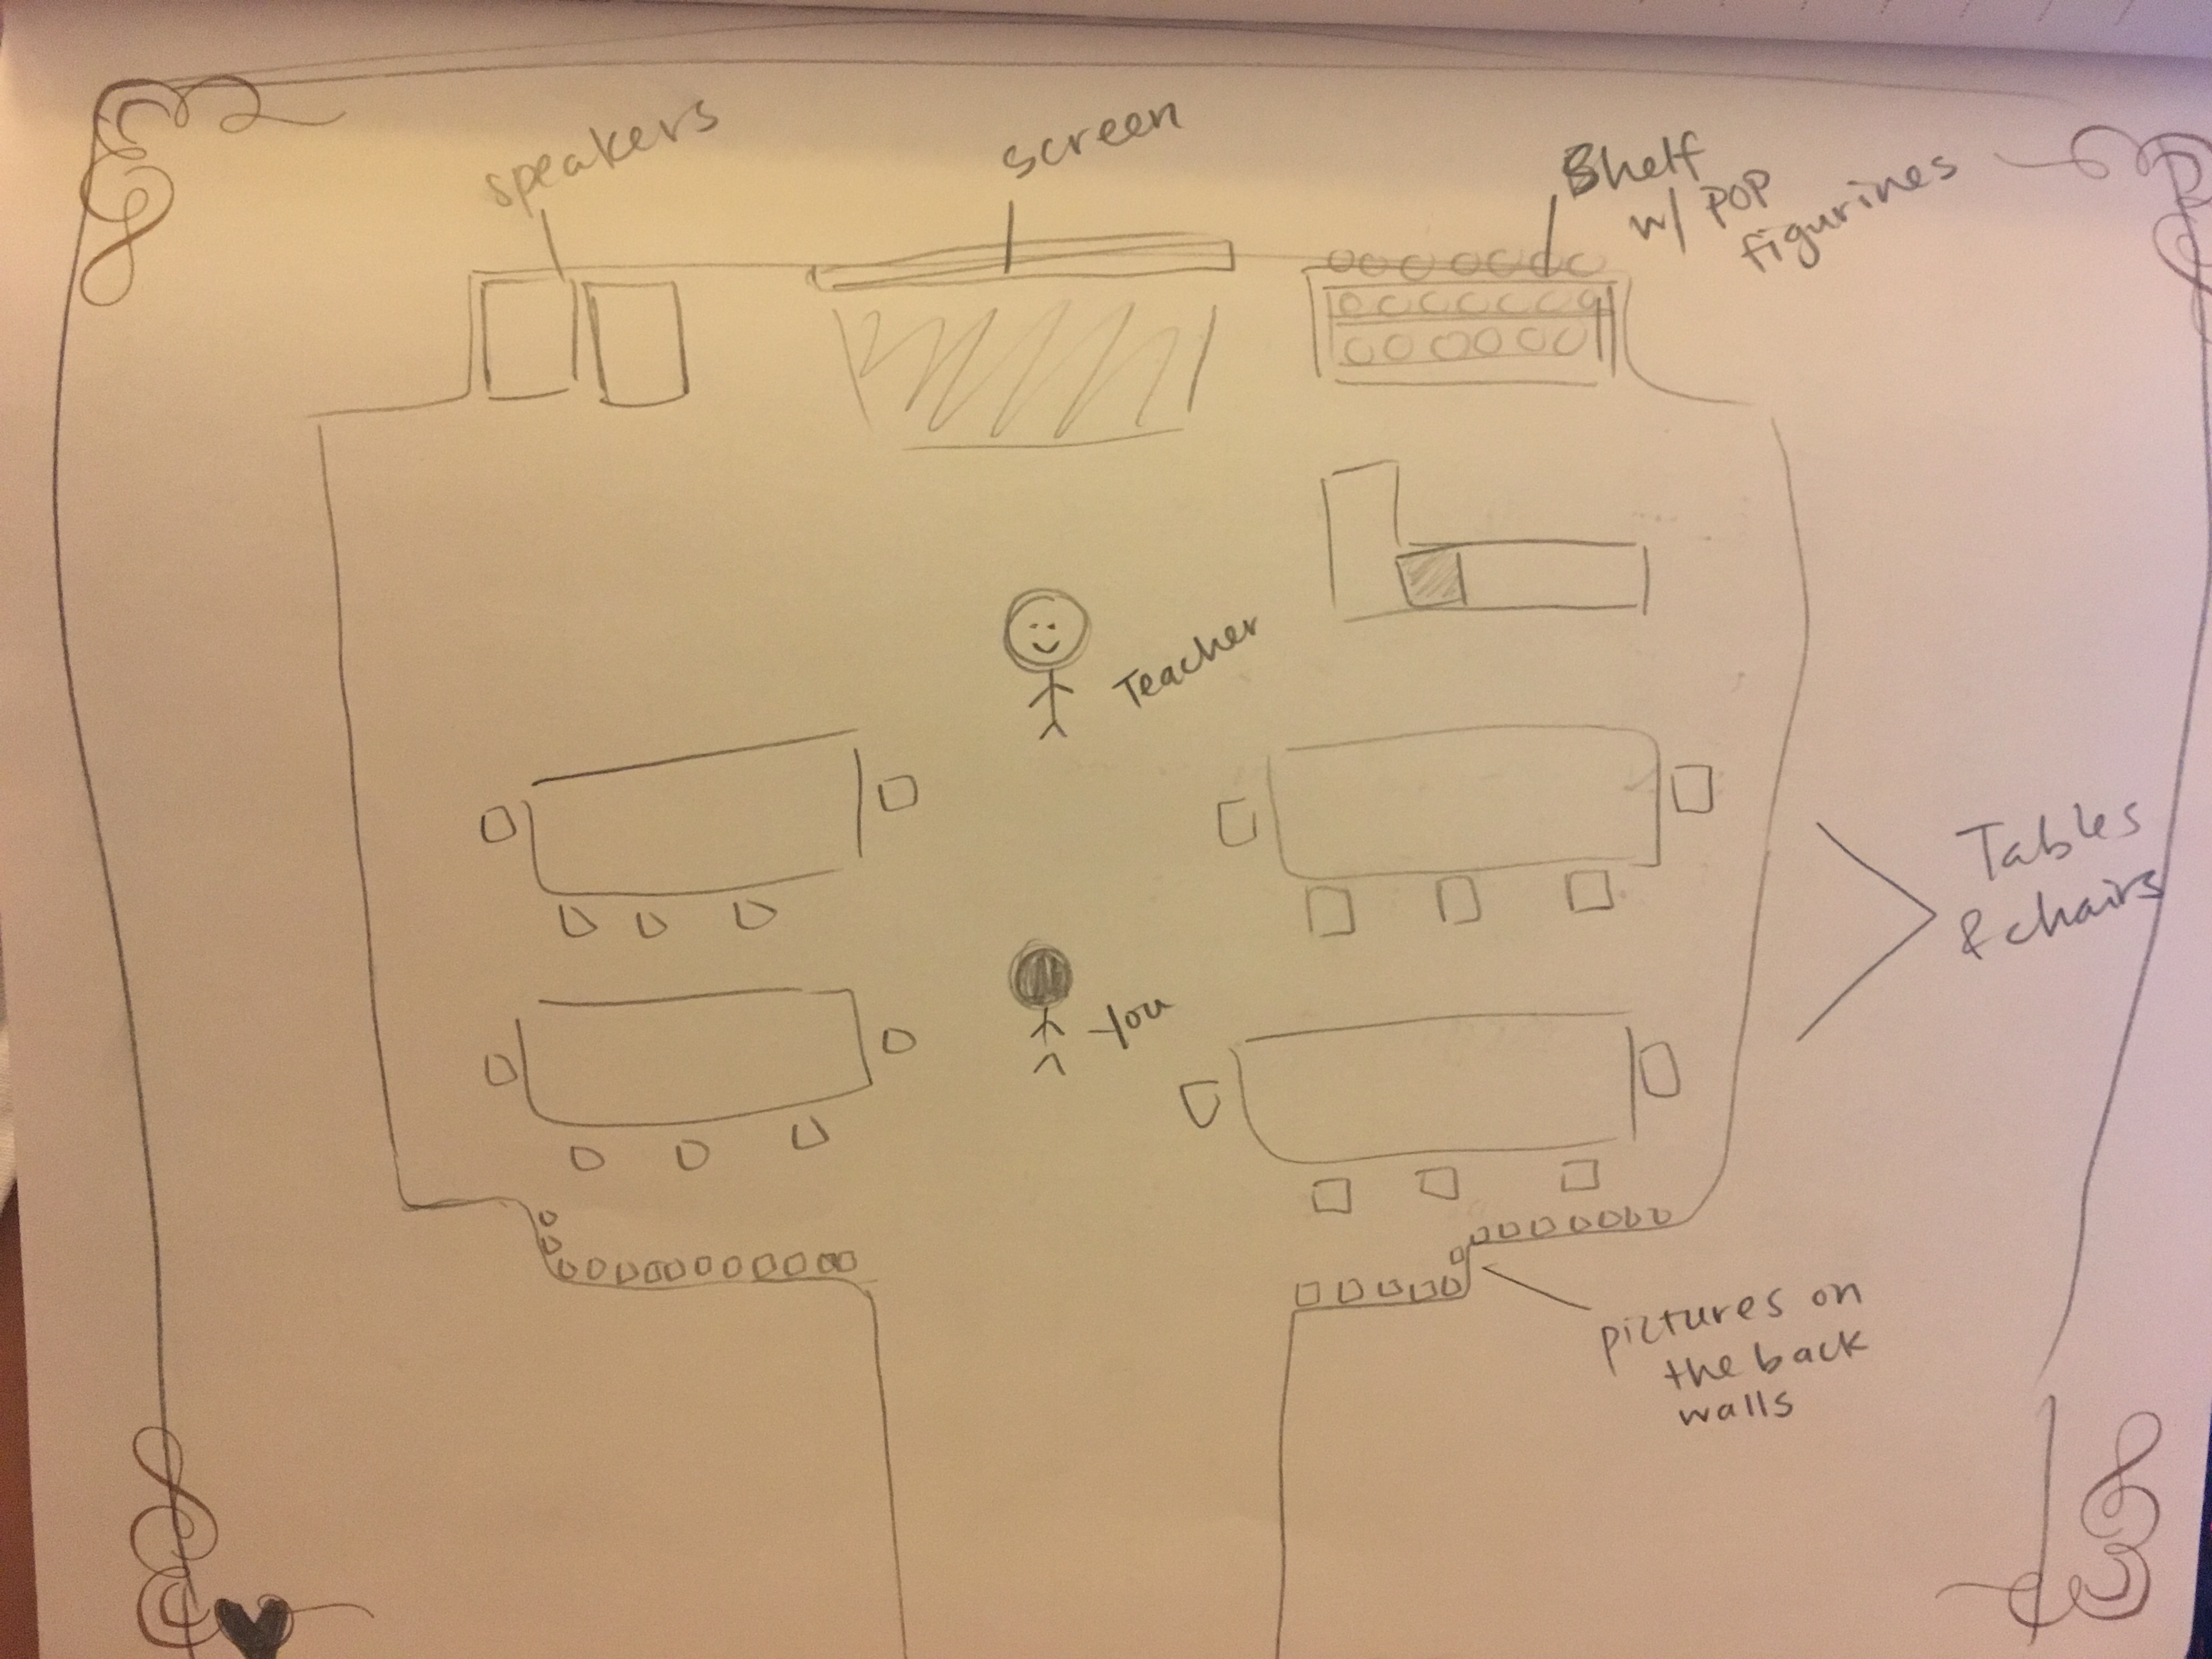 speakers
screen
Shelf
w/ POP
figurines
Teacher
Tables
& chairs
You
pictures on
the back
walls